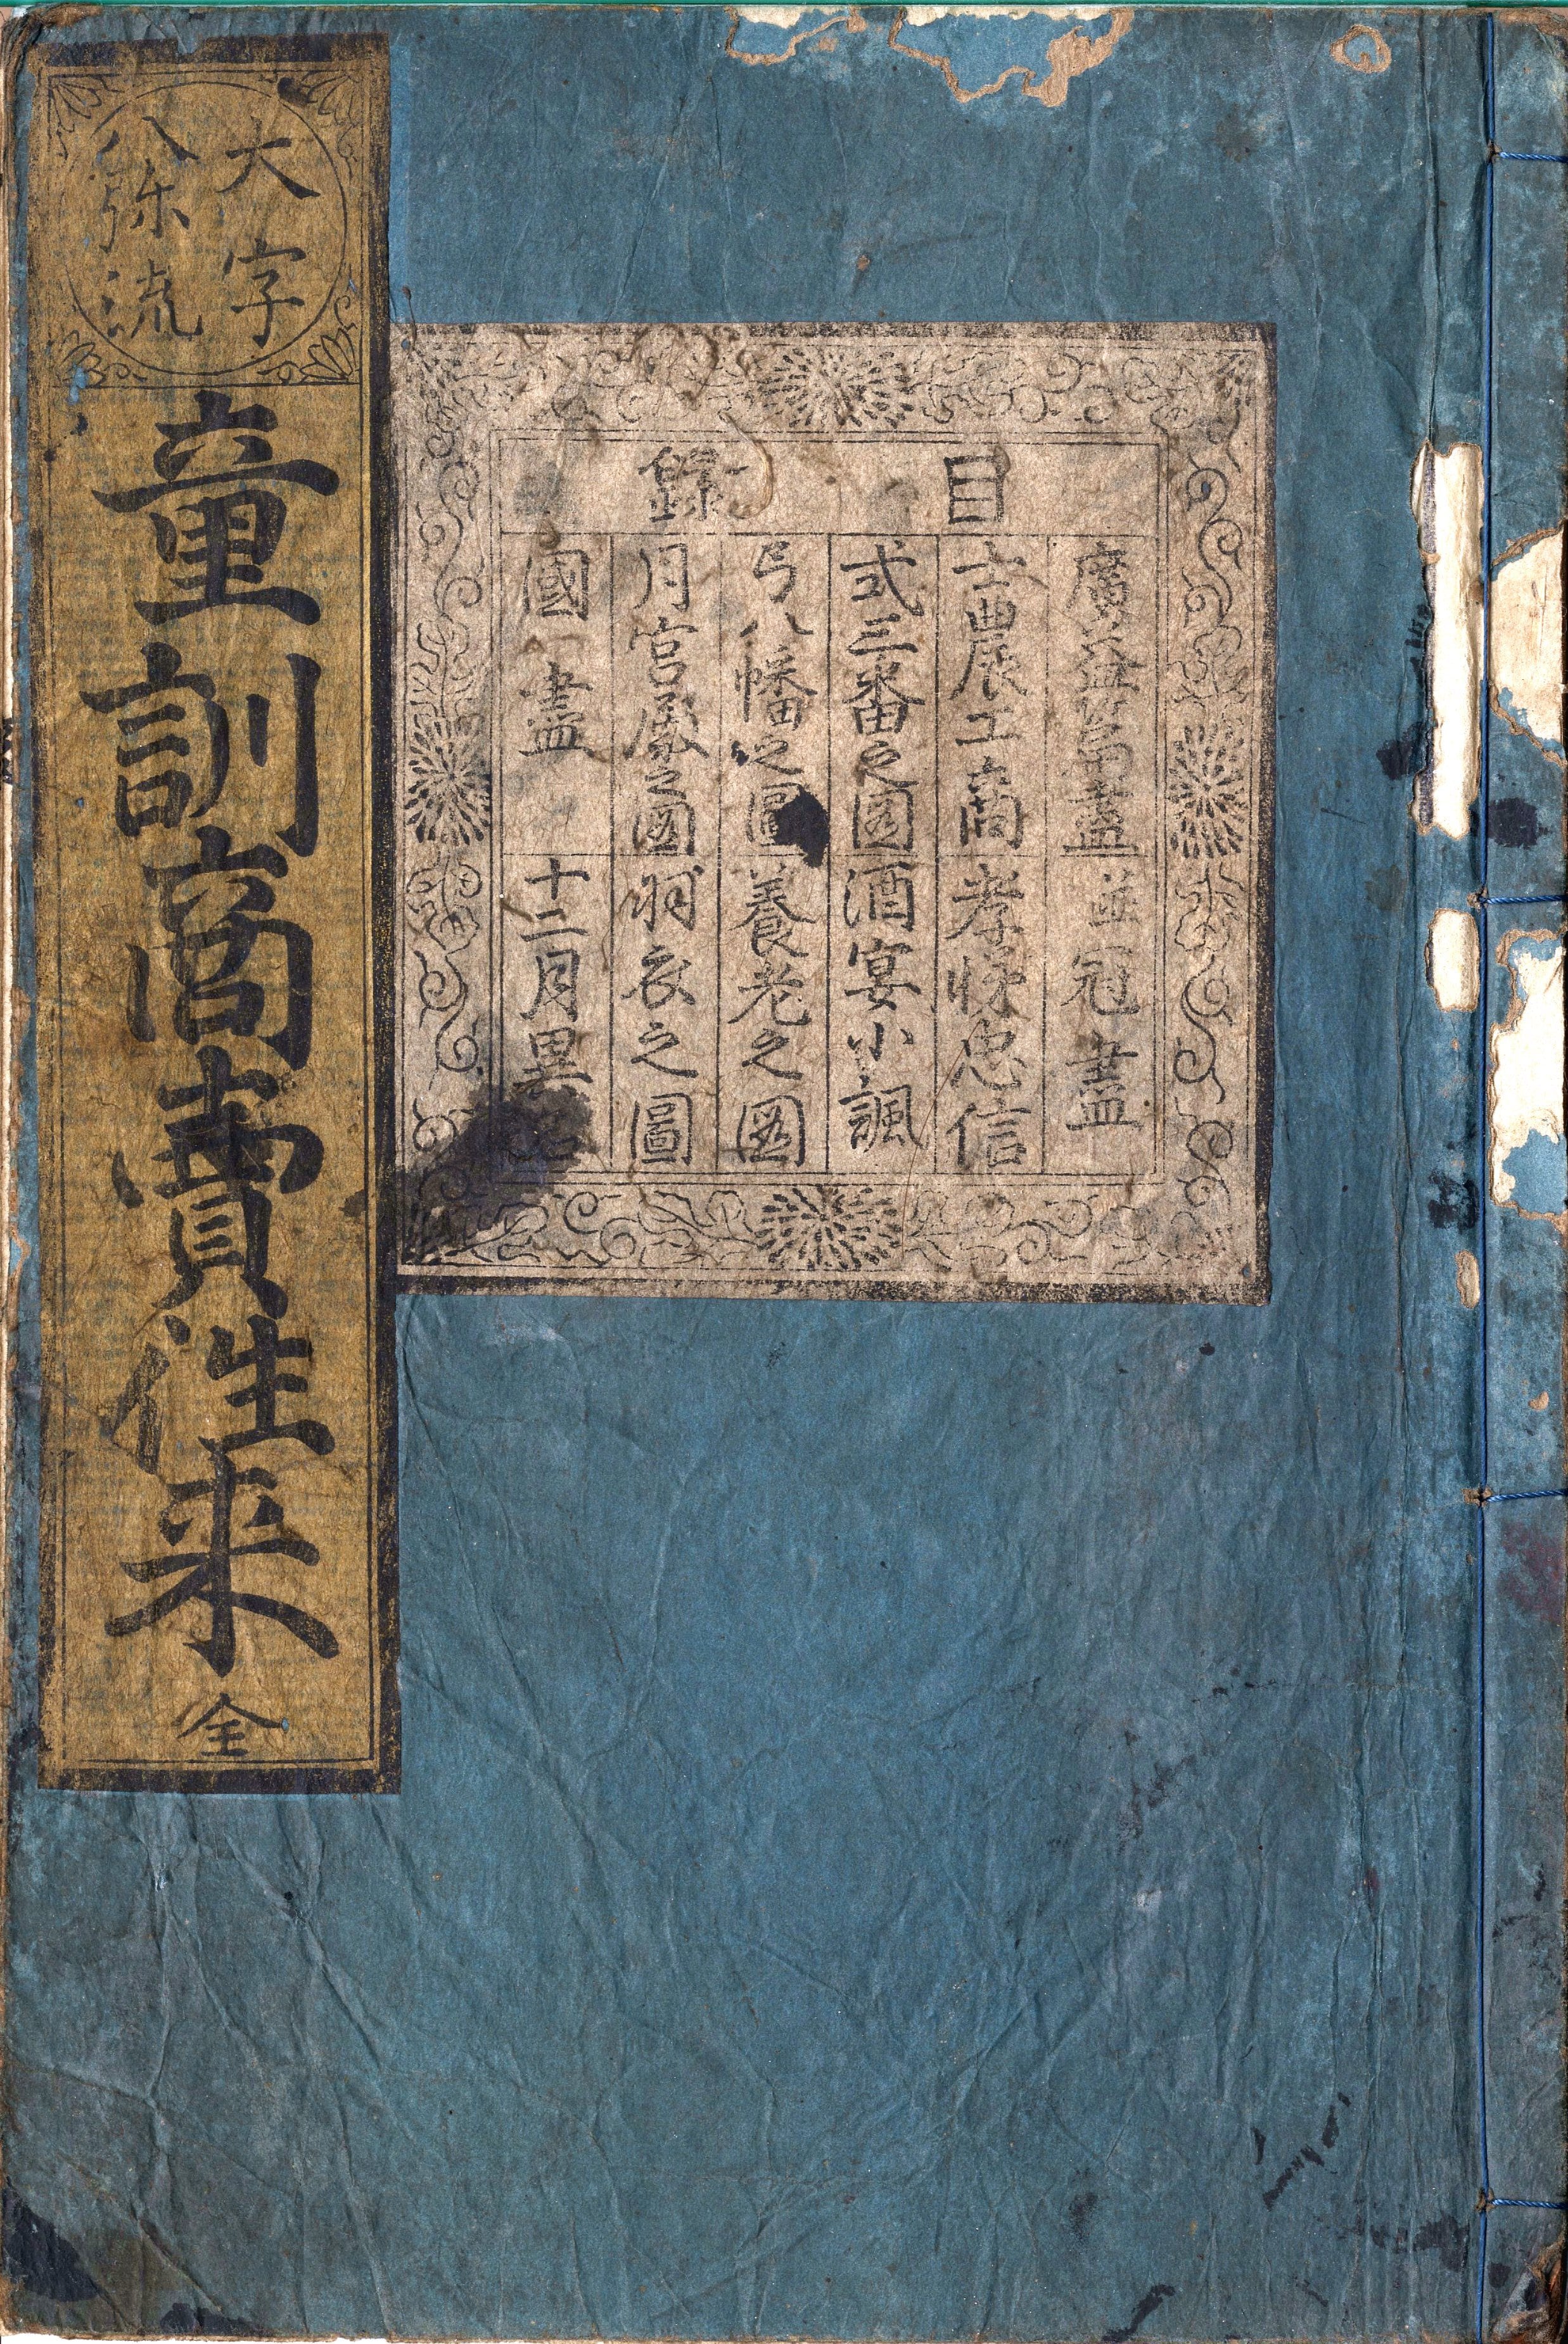 大字
八弥流
童訓商賣往来 全
目録
廣益篇盡 並冠盡
士農工商 孝悌忠信
式三番之図 酒宴小諷
弓八幡之圖 養老之図
月宮殿之図 羽衣之圖
國盡 十二月異名